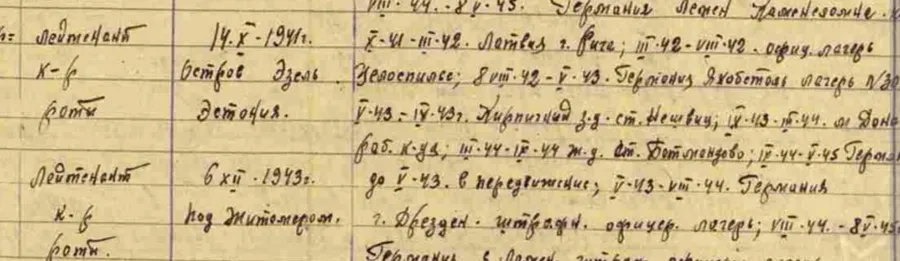 VIII-44.-8 V-45. Германия
лейтенант 14.X-1941г. X-41-III-42. Латвия г. Рига; III-42-VIII-42. офиц. лагерь
к-р Остров Эзель. 8 VIII-42-V-43. Германия лагерь N30
роты Эстония. V-43-IX-43г. Кирпичный з-д-ст. Нешвиц; IX-43-III-44. м
раб. к-да, III-44-IX-44 ж.д. ст. IX-44-V-45
Лейтенант 6 XII-1943г. до V-43. в передвижение; V-43-VIII-44. Германия
к-р под Житомером. г. Дрезден. штрафн. офицер. лагерь; VIII-44.-8 V-45
роты. Германия